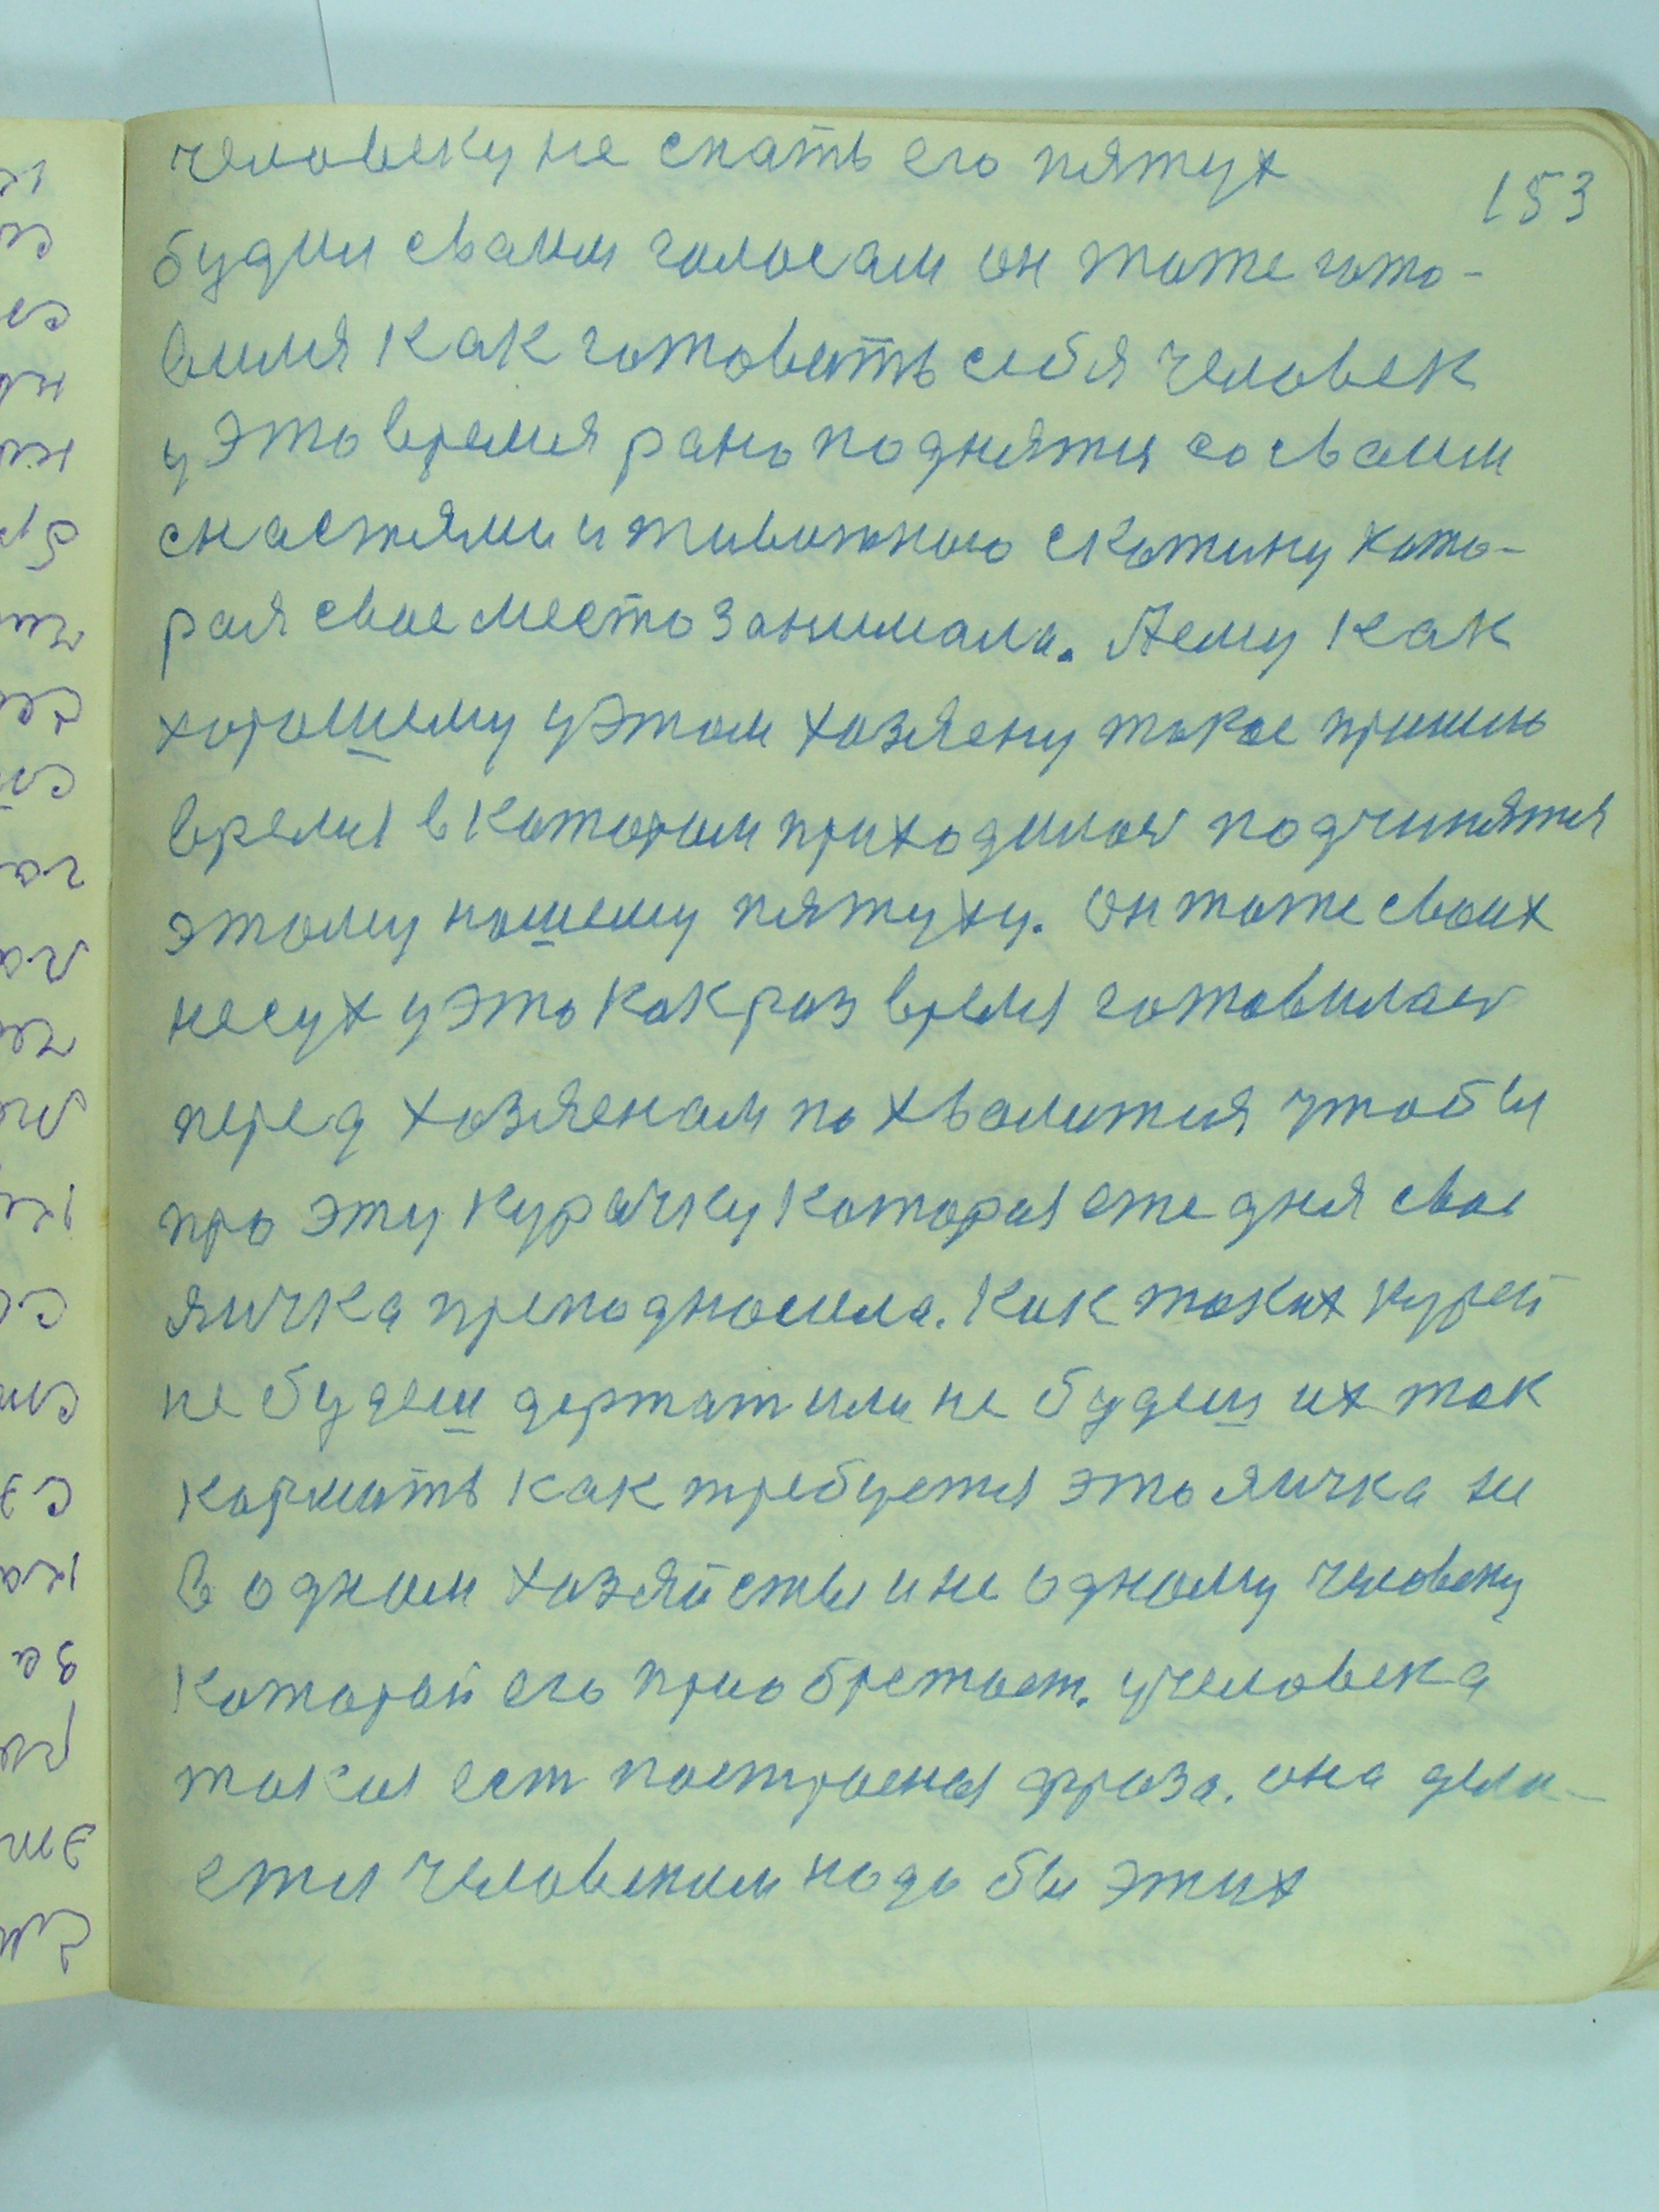 153
человеку не спать его пятух
будил сваим голосам он тоже гото-
вился как готовить себя человек
у это время рано поднятся со сваим
снастями и тивотною скотину кото-
рая свое место занимала. Аему как
хорошему у этом хозяену такое пришло
время в котором приходилось подчинятся
этому нашему пятуху. он тоже своих
несух у это как раз время готовилась
перед хозяенам похвалится чтобы
про эту курачку которая еже дня свое
яичка преподносила. Как таких курей
не будеш держат или не будеш их так
кормить как требуется это яичка ни
в одном хозяйстве и не одному человеку
которай его приобретает. учеловека
такая ест построеная фраза. она дела-
ется человеком надо бы этих